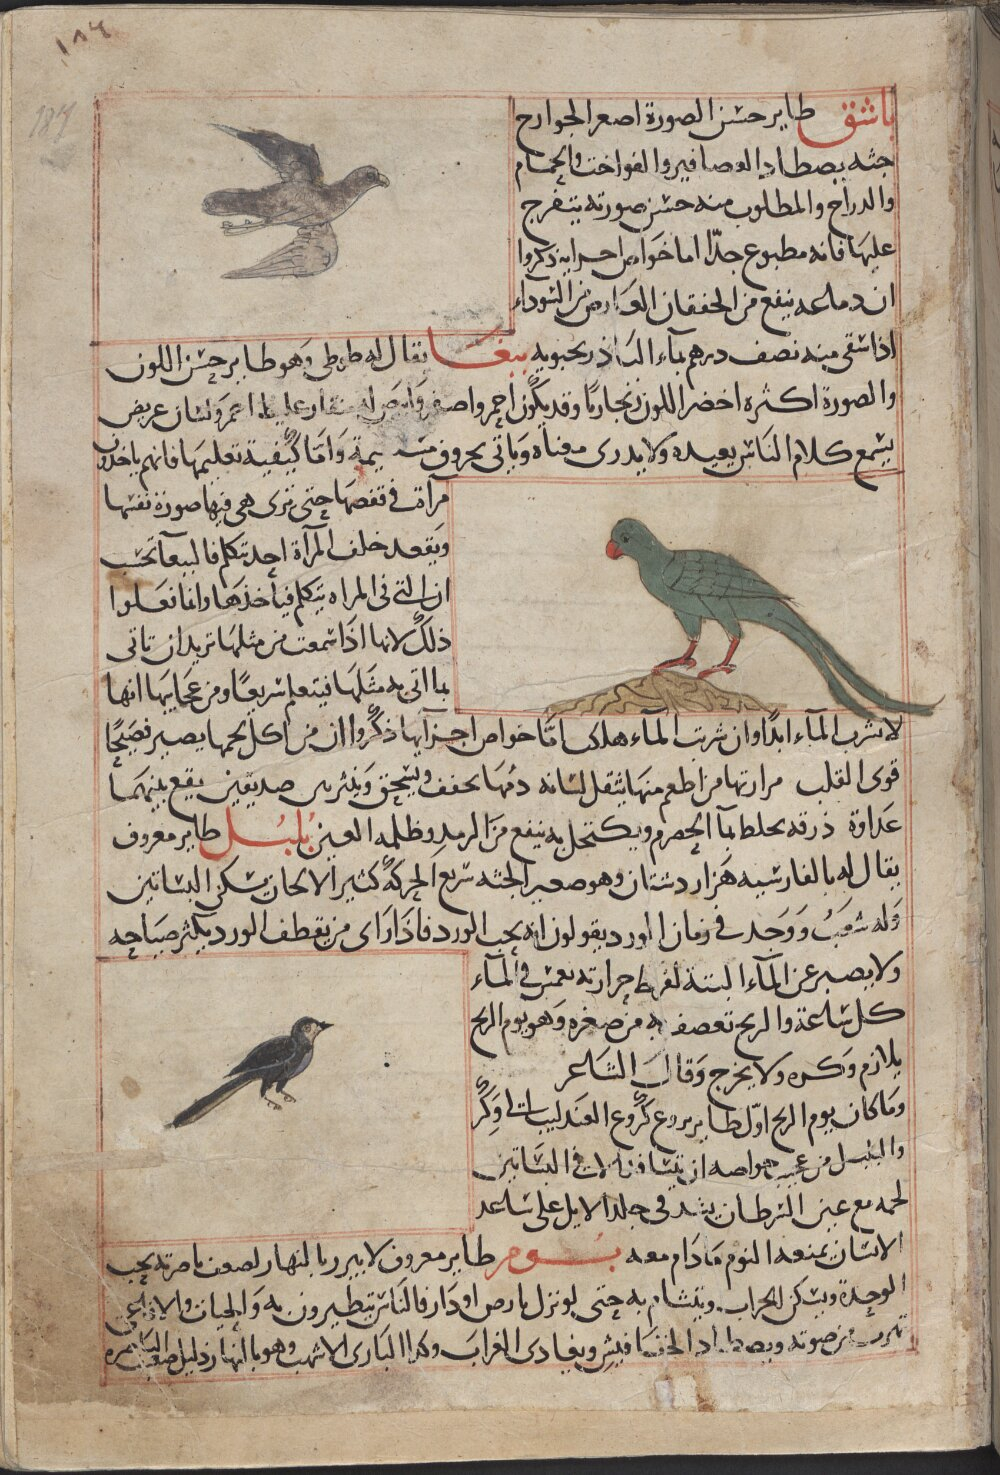 ١٨٦
187
باشق طاير حسن الصورة اصغر الجوارح
جثه يصطاد العصافير والفواخت والحمام
والدراج والمطلوب منه حسن صورته يتفرج
عليها فانه مطبوع جدّا اما خواص اجزايه ذكروا
ان دماغه ينفع من الخفقان العارض من السوداء
اذا سقى منه نصف درهم بماء الباذرنجبويه ببغا يقال له طوطى وهو طاير حسن اللون
والصورة اكثره اخضر اللون زنجاريّا وقد يكون احمر واصفر وابيض له منقار غليظ احمر ولسان عريض
يسمع كلام الناس يعيده ولا يدرى معناه وياتى بحروف وامّا كيفية تعليمها فانهم ياخذون
مرآة فى قفصها حتى ترى هى فيها صورة نفسها
ويقعد خلف المرآة احد تتكلم فالببغا تحسب
ان التى فى المراه يتكلم فيأخذها وانما فعلوا
ذلك لانها اذا سمعت من مثلها تريد ان تاتى
بما اتى به مثلها فيتعلم سريعًا ومن عجايبها انها
لا تشرب المآء ابدًا وان شربت المآء هلكت امّا خواص اجزآيها ذكروا ان من اكل لحمها يصير فصيحًا
قوى القلب مرارتها من اطعم منها يثقل لسانه دمها يجفف ويسحق وينثر بين صديقين يقع بينهما
عداوة ذرقه يخلط بمآ الحصرم ويكتحل به ينفع من الرمد وظلمه العين بلبل طاير معروف
يقال له بالفارسيه هزار دستان وهو صغير الجثه سريع الحركة كثير الالحان يسكن البساتين
وله شغب ووجد فى زمان الورد يقولون انه يحب الورد فاذا راى من يقطف الورد يكثر صياحه
ولا يصبر عن المآء البتة لفرط حرارته يغمس فى المآء
كل ساعة والريح تعصف به من صغره وهو يوم الريح
يلازم وكره ولا يخرج وقال الشاعر
وما كان يوم الريح اوّل طاير يروع كروع العندليب الى وكر
والبلبل من عجيب خواصه ان فى البساتين
لحمه مع عين السرطان يشد فى جلد الايل على ساعد
الانسان يمنعه النوم ما دام معه بوم طاير معروف لا يبرز بالنهار لضعف باصرته يحب
الوحدة ويسكن الخراب ويتشام به حتى لو نزل بارض او دار فالناس يتطيرون به والحيات والافاعى
تهرب من صوته ويصطاد الخفافيش ويعادى الغراب وكذا البازى الاشهب وهو بالنهار ذليل ضعيف الباصره